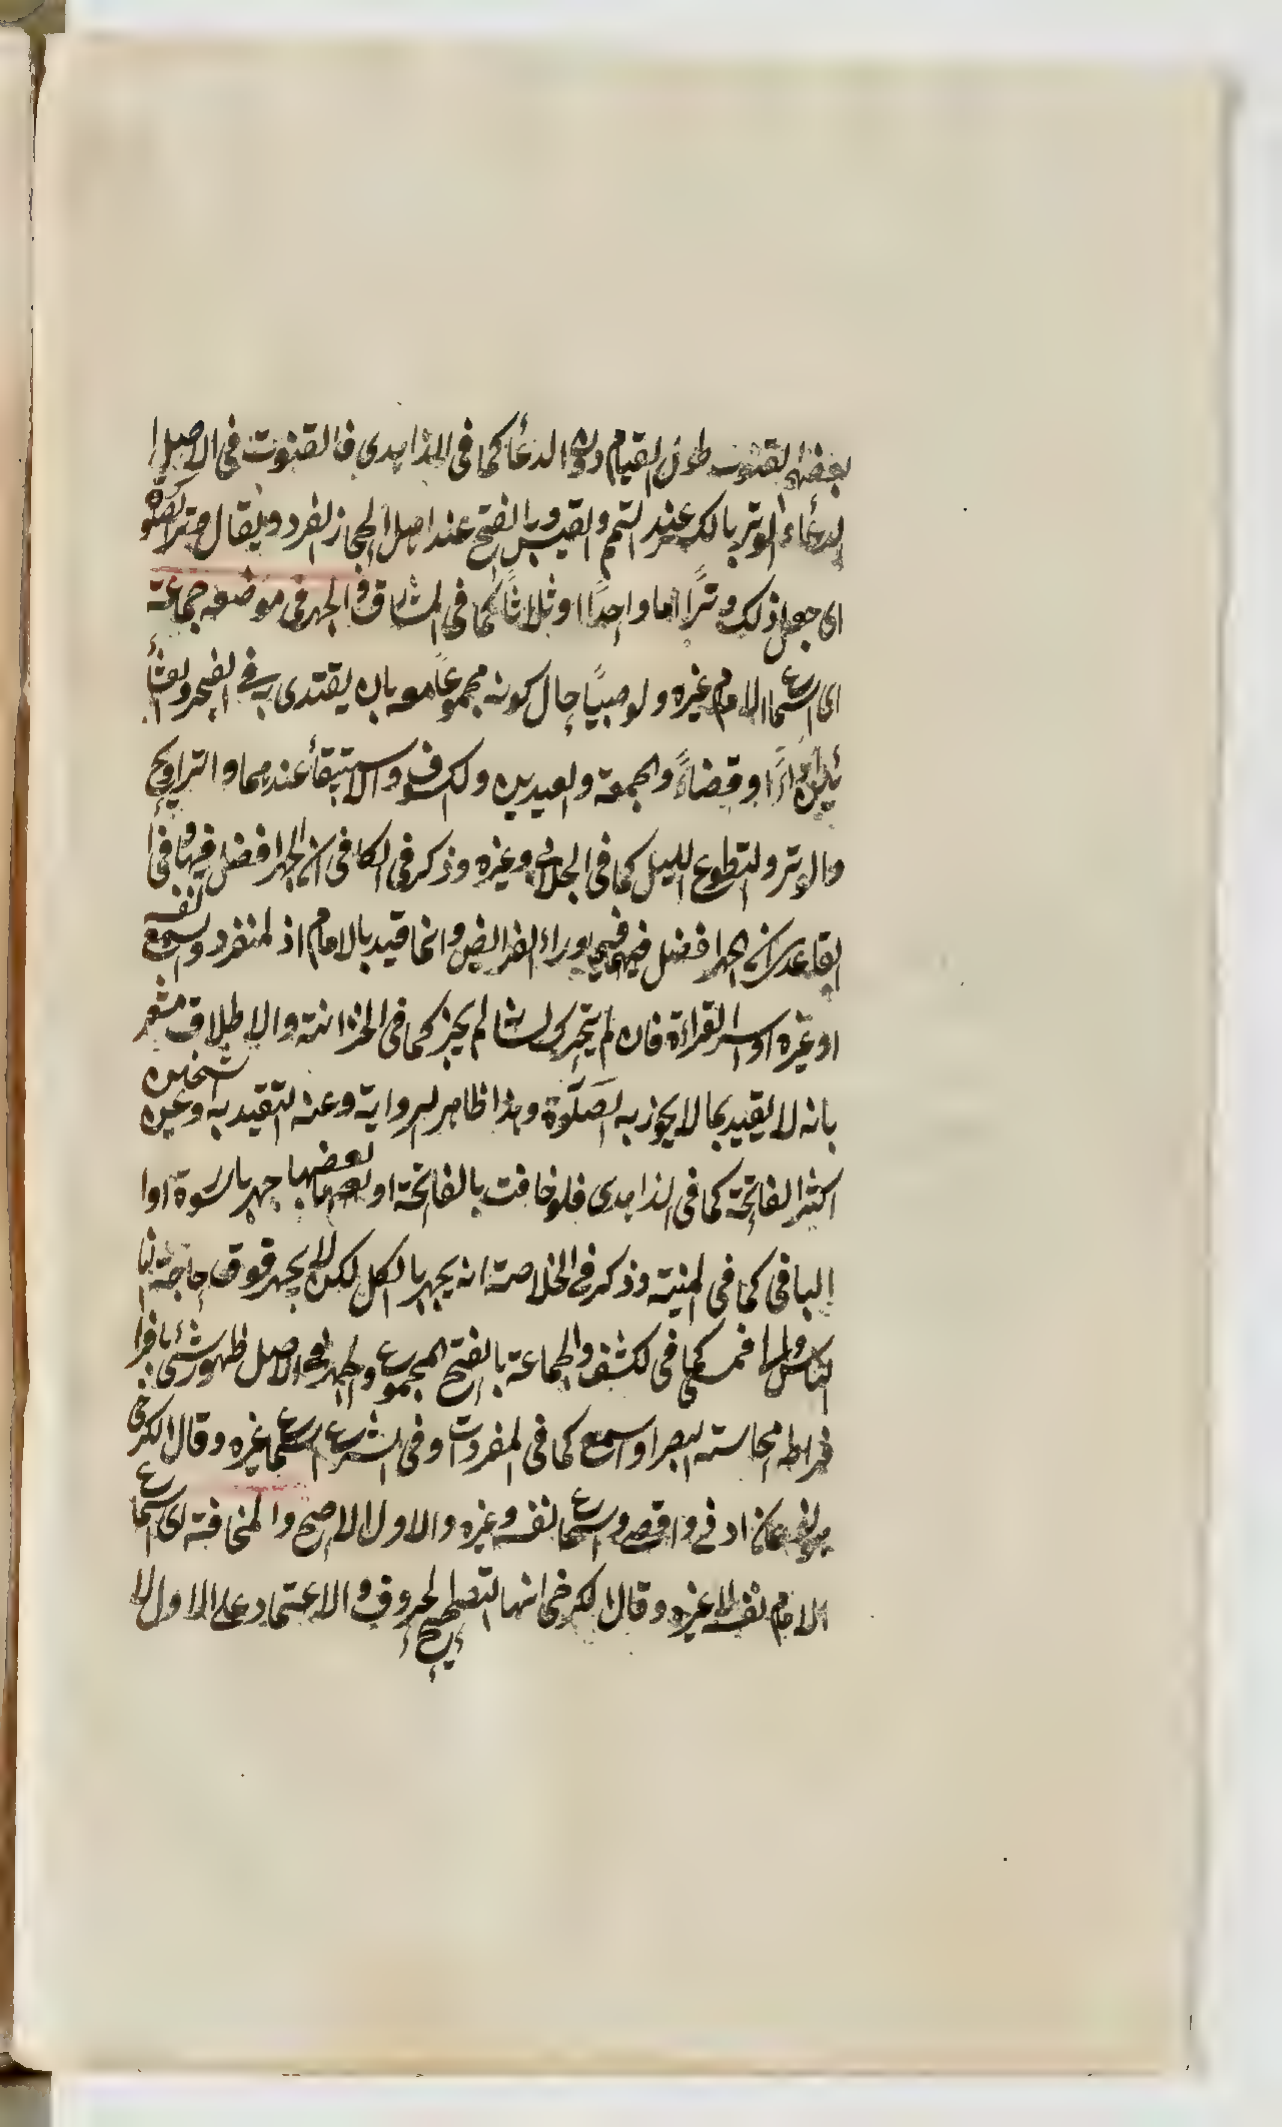 بعضهم القنوت طول القيام دون الدعأ كما فى الزاهدى فالقنوت فى الاصل ا
لدعاء والوتر بالكسر عند التميم والقيس وبالفتح عند اهل الحجاز الفرد ويقال وتر الصلوة
اى جعل ذلك وترًا اما واحدًا او ثلاثًا كما فى المشارق والجهر فى موضعه جماعة
اى اسماع الامام غيره ولو صبيًا حال كونه مجموعًا معه بان يقتدى به فى الفجر والعشأ
ئين ادأً او قضاءً والجمعة والعيدين والكسوف والاستسقأ عندهما والتراويح
والوتر والتطوع الليل كما فى الجلابى وغيره وذكر فى الكافى ان الجهر افضل فيهما وفى
القاعدى ان الجهر افضل فيهما فيما وراء الفرائض وانما قيد بالامام اذ المنفرد يسمع نفسه
او غيره او اسر القراءة فان لم يتحرك لسانه لم يجز كما فى الخزانة والاطلاق مشعر
بانه لا يقيد بما لا يجوز به الصلوة وهذا ظاهر الرواية وعنه التقيد به وعن شيخين
اكثر الفاتحة كما فى الزاهدى فلو خافت بالفاتحة او بعضها جهر بالسورة او ا
لباقى كما فى المنية وذكر فى الخلاصة انه يجهر بالكل لكن لا يجهر فوق حاجة
الناس كما فى كشف والجماعة بالفتح المجموع والجهر فى الاصل ظهور شئ بافرا
فراط لحاسة البصر او السمع كما فى المفردات وفى الشرع اسماع غيره وقال الكرخى
هو ادنى واقصى اسماع نفسه وغيره والاول الاصح والمخافتة اى اسماع
الامام نفسه لا غيره وقال الكرخى انها تصحيح الحروف والاعتماد على الاول لا